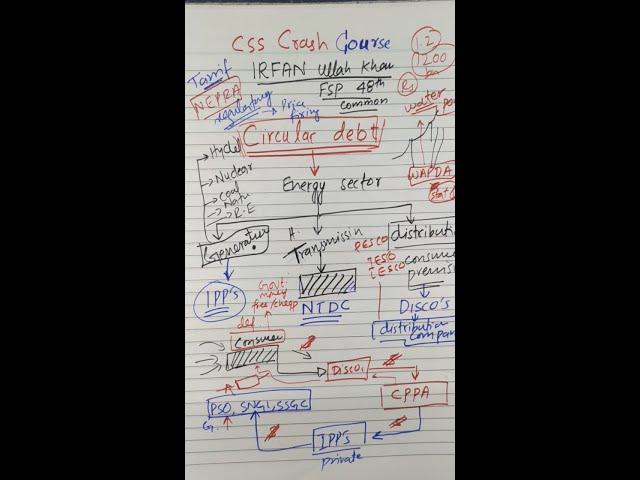 CSS Crash Course
IRFAN Ullah Khan
FSP 48th
common
Tarrif
NEPRA
regulating
Price
fixing
1.2
1200
bn
Rs
water
Circular debt
Hydel
Nuclear
Coal
Natu
R.E
Energy sector
WAPDA
Generation
Transmissin
distributi
PESCO
IESO
TESCO
consume
premise
IPP's
NTDC
DISCO's
distribution
compan
Govt:
money
free/cheap
def
consumer
DISCO,
CPPA
PSO, SNGL, SSGC
G.
IPP's
private